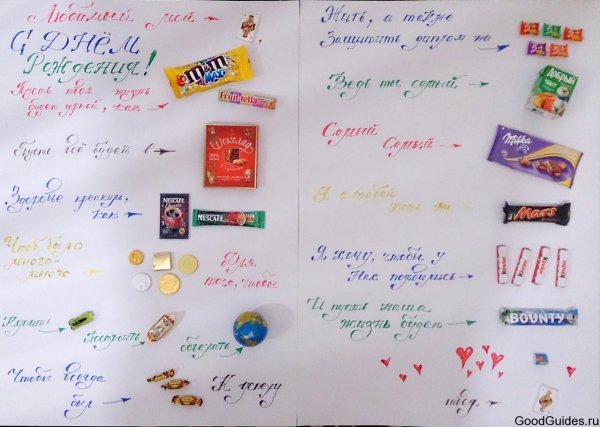 Любимый мой
С ДНЁМ
Рождения!
m&m's
MAXI
Пусть твоя жизнь
будет яркой, как
Fruittella
Пусть всё будет в
Шоколад
Здоровье крепкиум, как
NESCAFÉ
NESCAFÉ
Чтоб было
много-
много
Для
того, чтобы
Купить
Построить
объехать
Чтобы всегда
был
К успеху
Жить, а также
Защитить диплом на
Ведь ты самый
Добрый
Самый
Самый
Milka
Я с тобой
хоть на
Mars
Я хочу, чтобы у
Нас появились
Kinder
Kinder
Kinder
Kinder
И пусть наша
жизнь будет
BOUNTY
твоя
GoodGuides.ru